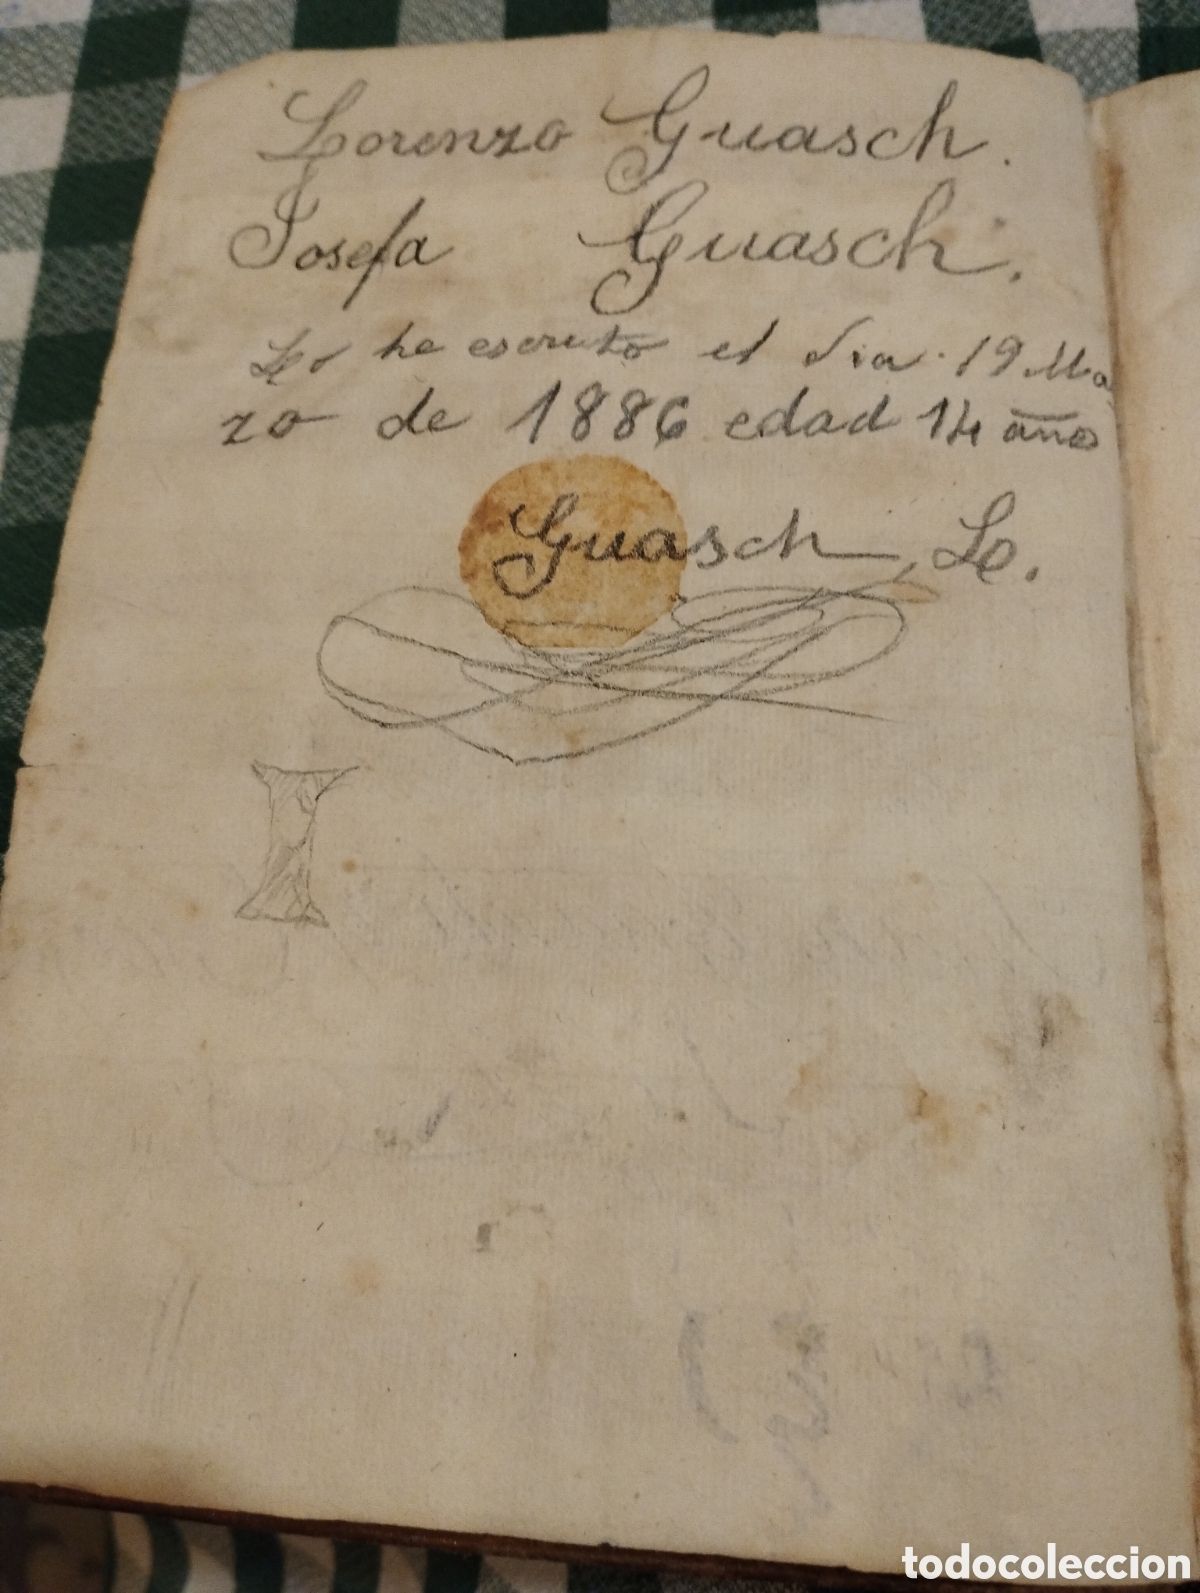 Lorenzo Guasch.
Josefa Guasch.
Lo he escrito el dia 19 Ma
zo de 1886 edad 14 años
Guasch, Lo.
I
todocoleccion